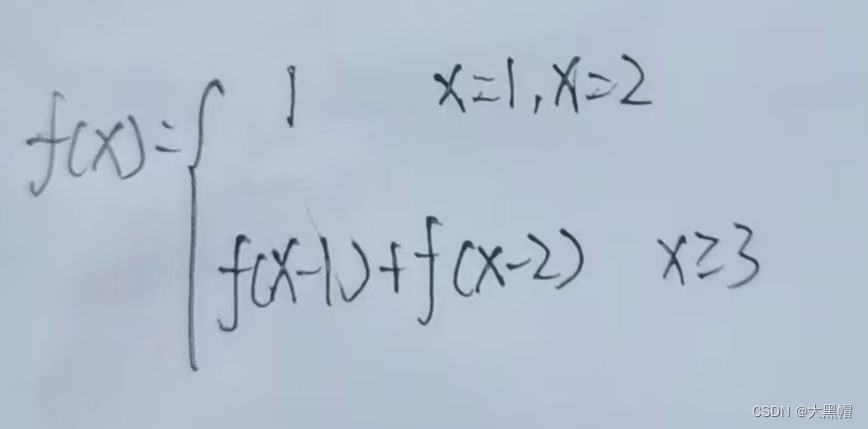 f(x)={ 1 x=1,x=2
f(x-1)+f(x-2) x≥3
CSDN @大黑帽